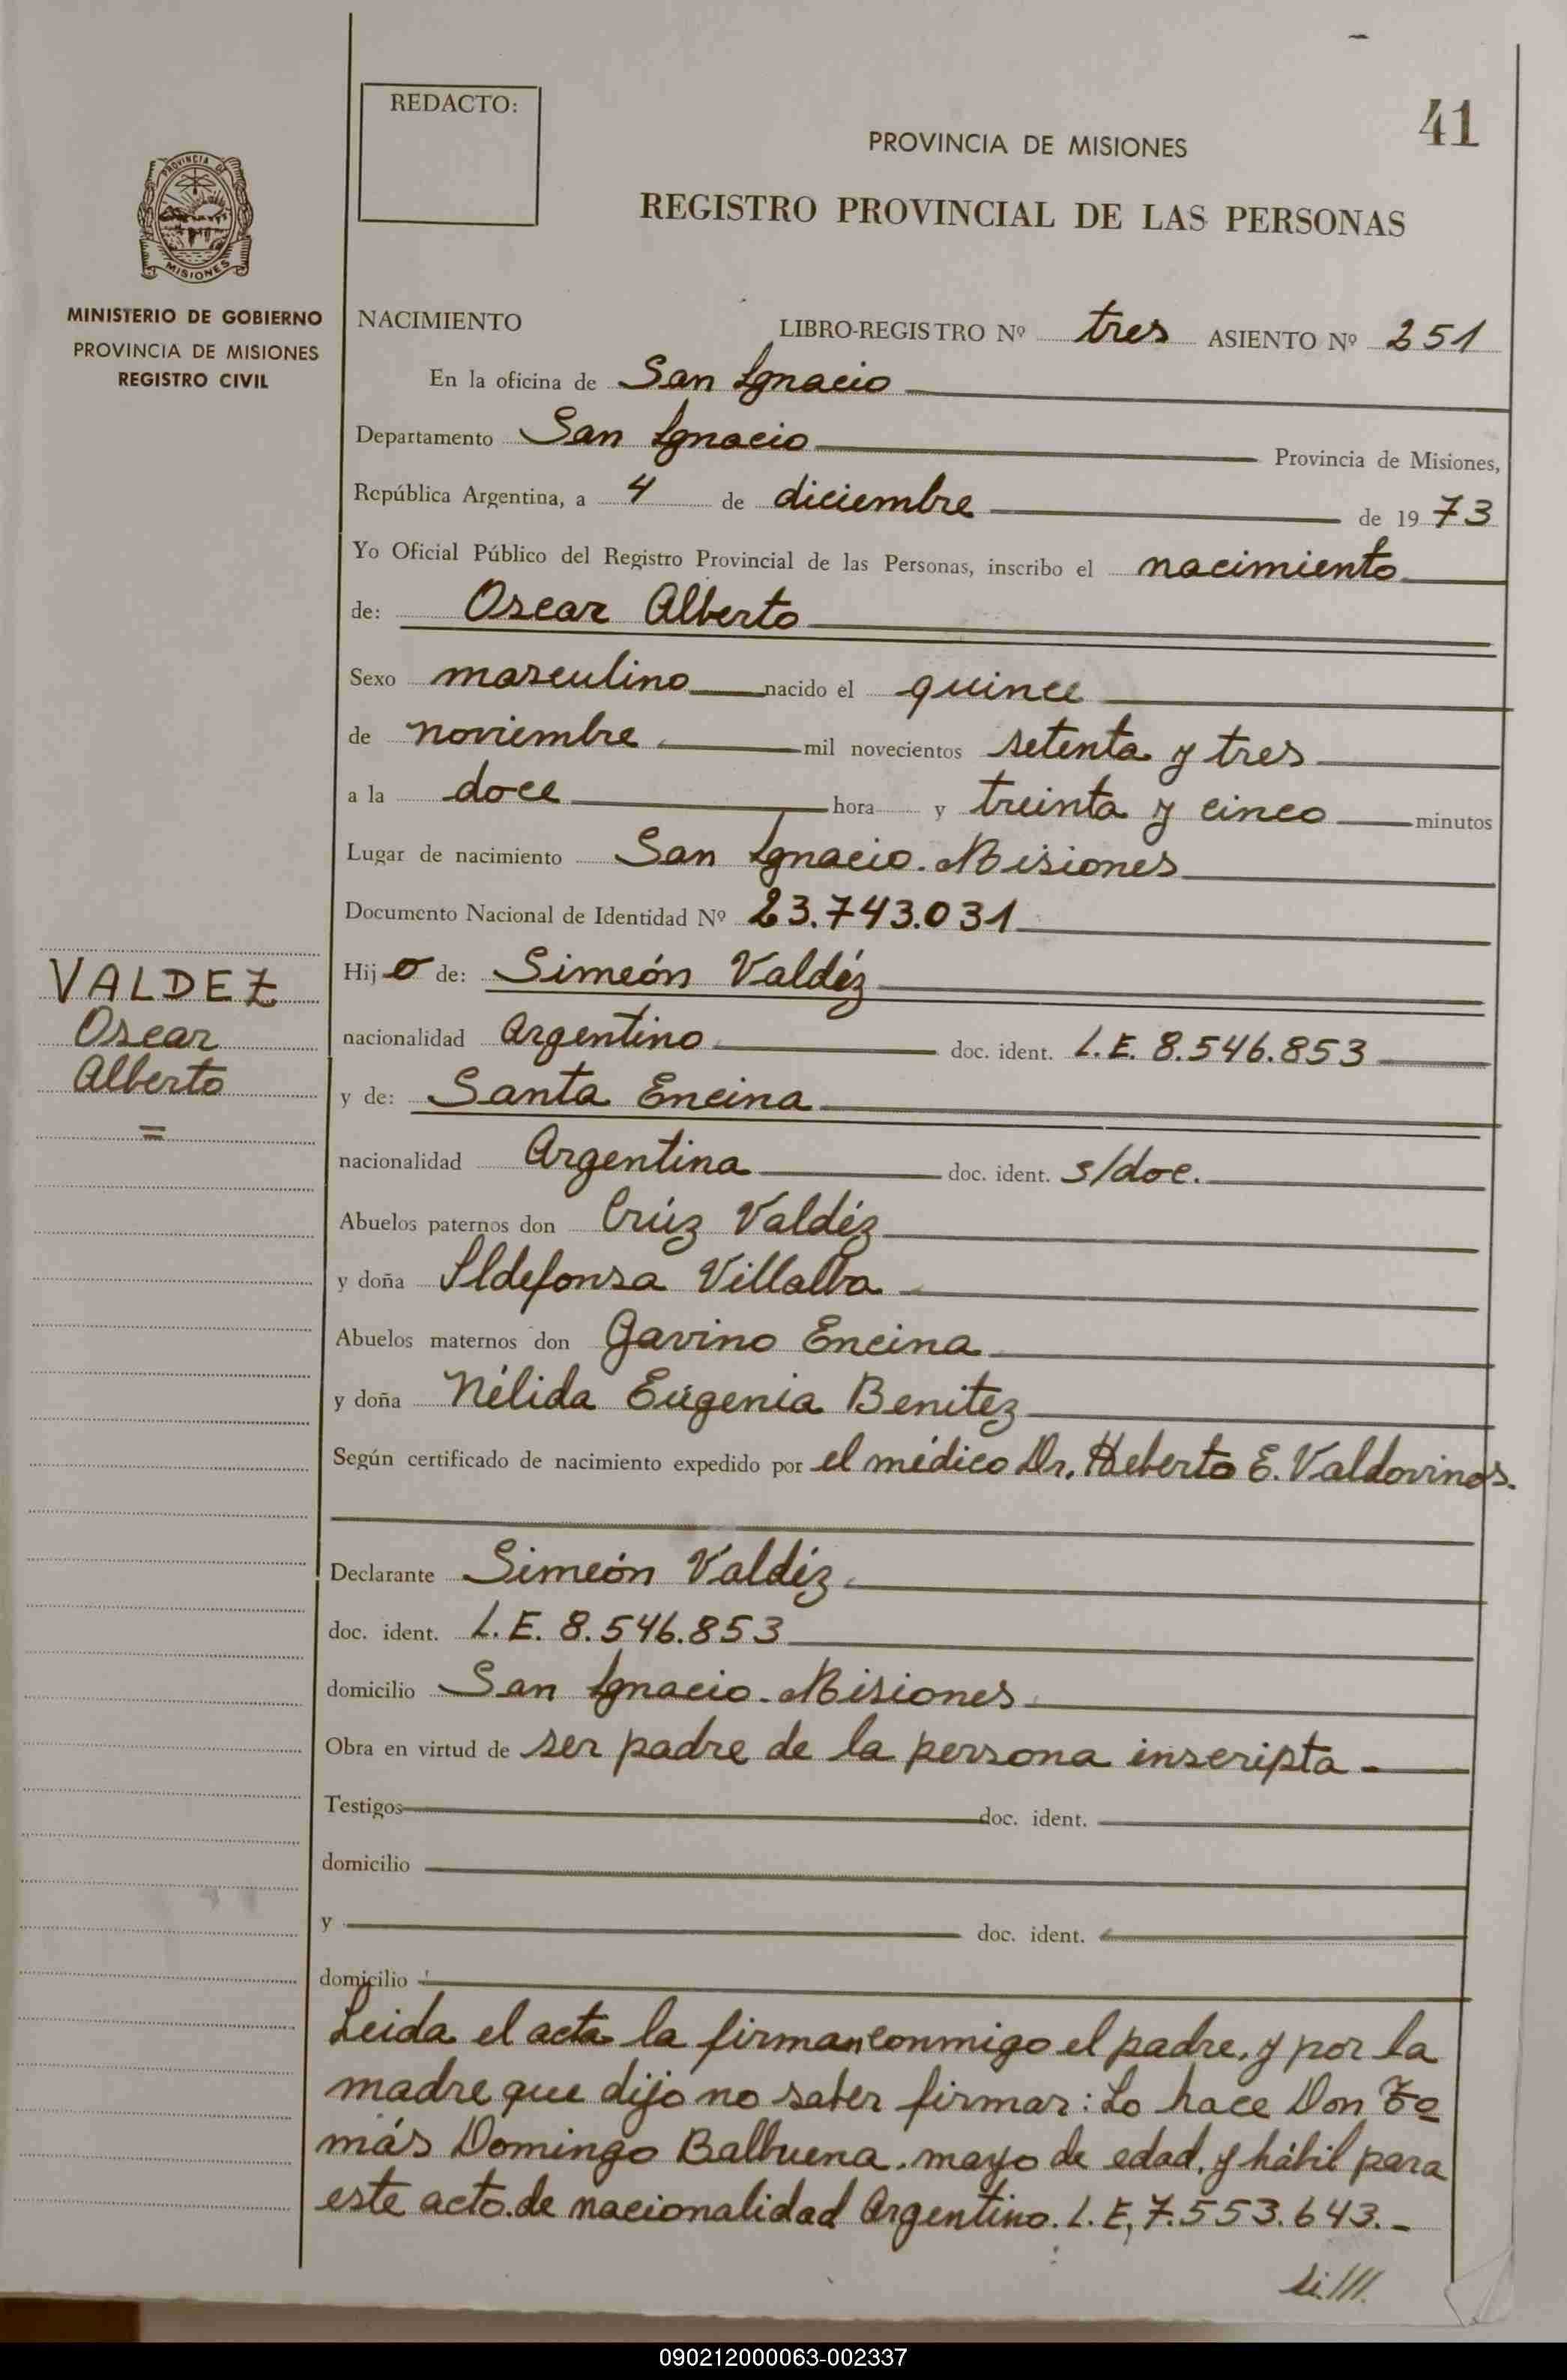 REDACTO:
41
PROVINCIA DE MISIONES
REGISTRO PROVINCIAL DE LAS PERSONAS
PROVINCIA DE
MISIONES
MINISTERIO DE GOBIERNO
PROVINCIA DE MISIONES
REGISTRO CIVIL
NACIMIENTO LIBRO-REGISTRO Nº tres ASIENTO Nº 251
En la oficina de San Ignacio
Departamento San Ignacio Provincia de Misiones,
República Argentina, a 4 de diciembre de 1973
Yo Oficial Público del Registro Provincial de las Personas, inscribo el nacimiento
de: Oscar Alberto
Sexo masculino nacido el quince
de noviembre mil novecientos setenta y tres
a la doce hora y treinta y cinco minutos
Lugar de nacimiento San Ignacio. Misiones
Documento Nacional de Identidad Nº 23.743.031
VALDEZ
Oscar
Alberto
=
Hijo de: Simeón Valdéz
nacionalidad Argentino doc. ident. L.E. 8.546.853
y de: Santa Encina
nacionalidad Argentina doc. ident. s/doc.
Abuelos paternos don Crúz Valdéz
y doña Ildefonsa Villalba
Abuelos maternos don Gavino Encina
y doña Nélida Eugenia Benitez
Según certificado de nacimiento expedido por el médico Dr. Heberto E. Valdovinos.
Declarante Simeón Valdéz
doc. ident. L.E. 8.546.853
domicilio San Ignacio. Misiones
Obra en virtud de ser padre de la persona inscripta -
Testigos doc. ident.
domicilio
y doc. ident.
domicilio
Leida el acta la firman conmigo el padre, y por la
madre que dijo no saber firmar: Lo hace Don To
más Domingo Balbuena. mayo de edad, y hábil para
este acto. de nacionalidad Argentino. L.E, 7.553.643.-
090212000063-002337